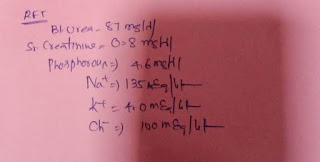 RFT
Bl. Urea - 87 mg/dl
Sr. Creatinine - 0=8 mg/dl
Phosphorous =) 4.6 mg/dl
Na+ =) 135 mEq/Lt
K+ = 4.0 mEq/Lt
Ch- =) 100 mEq/Lt